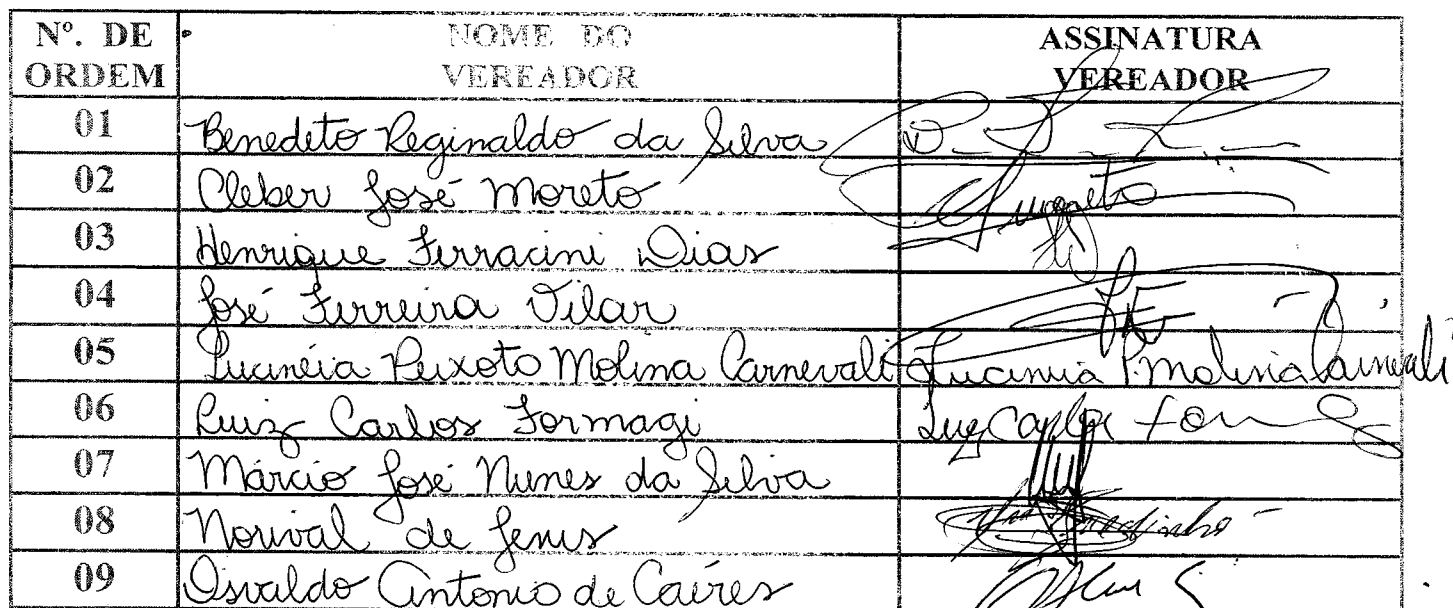 Nº. DE ORDEM NOME DO VEREADOR ASSINATURA VEREADOR
01 Benedito Reginaldo da Silva
02 Cleber José Moreto
03 Henrique Ferracini Dias
04 José Ferreira Vilar
05 Lucinéia Peixoto Molina Carnevali Lucinéia P. Molina Carnevali
06 Luiz Carlos Formagi Luiz Carlos
07 Márcio José Nunes da Silva
08 Norival de Jesus
09 Osvaldo Antonio de Caires